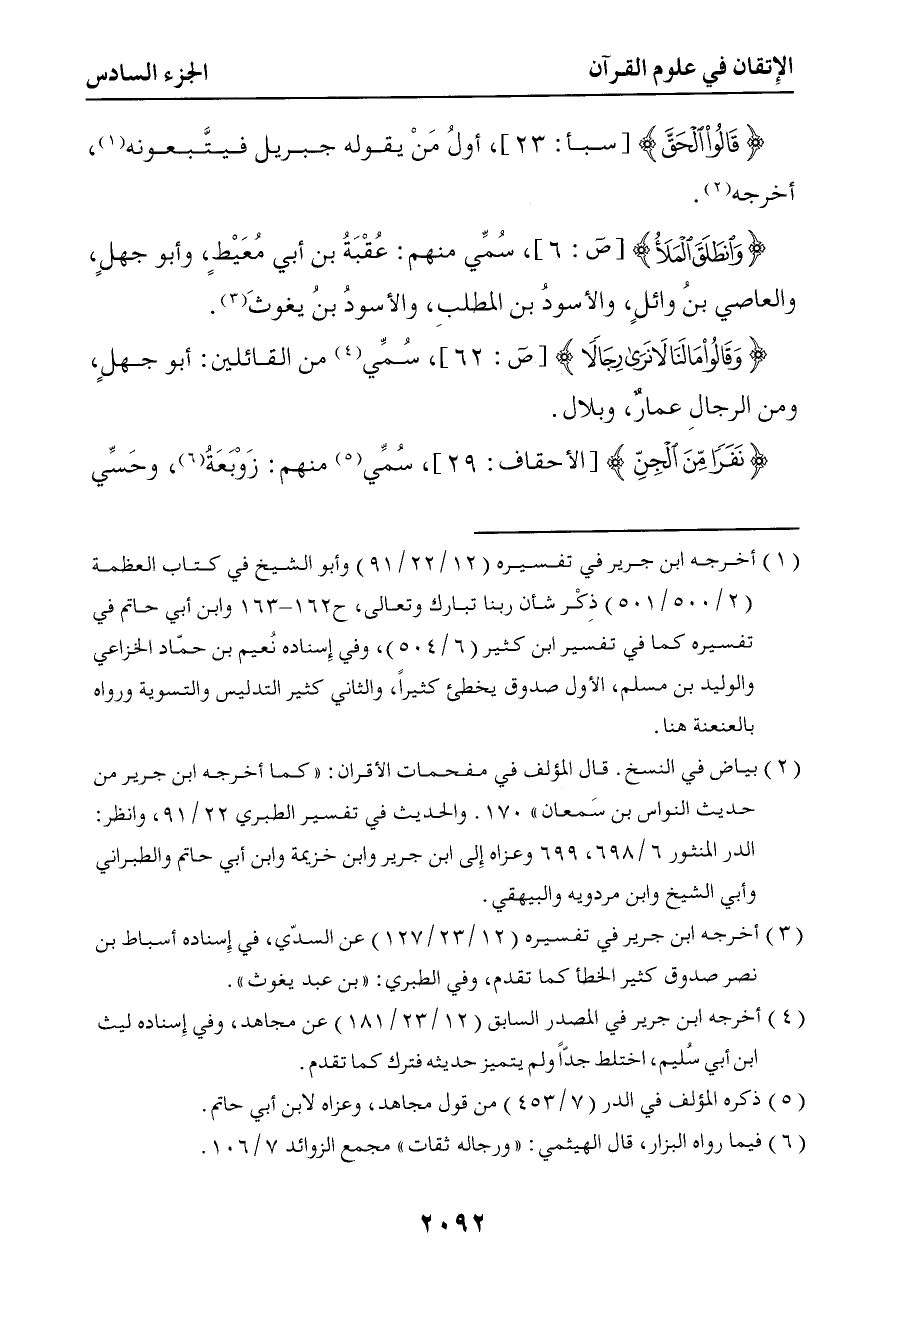 الإتقان في علوم القرآن
الجزء السادس
﴿ قَالُواْ ٱلْحَقَّ ﴾ [سبأ: ٢٣]، أولُ مَنْ يقوله جبريل فيتَّبعونه(١)،
أخرجه(٢).
﴿ وَٱنطَلَقَ ٱلْمَلَأُ ﴾ [صٓ : ٦]، سُمِّي منهم: عُقْبَةُ بن أبي مُعَيْطٍ، وأبو جهلٍ،
والعاصي بنُ وائلٍ، والأسودُ بن المطلبِ، والأسودُ بنُ يغوثَ(٣).
﴿ وَقَالُواْ مَا لَنَا لَا نَرَىٰ رِجَالًا ﴾ [صٓ : ٦٢]، سُمِّي(٤) من القائلين: أبو جهلٍ،
ومن الرجالِ عمارٌ، وبلال.
﴿ نَفَرًا مِّنَ ٱلْجِنِّ ﴾ [الأحقاف: ٢٩]، سُمِّي(٥) منهم: زَوْبَعَةُ(٦)، وحَسِّي
(١) أخرجه ابن جرير في تفسيره (٩١/٢٢/١٢) وأبو الشيخ في كتاب العظمة
(٥٠١/٥٠٠/٢) ذِكْر شأن ربنا تبارك وتعالى، ح١٦٢-١٦٣ وابن أبي حاتم في
تفسيره كما في تفسير ابن كثير (٥٠٤/٦)، وفي إسناده نُعيم بن حمّاد الخزاعي
والوليد بن مسلم، الأول صدوق يخطئ كثيراً، والثاني كثير التدليس والتسوية ورواه
بالعنعنة هنا.
(٢) بياض في النسخ. قال المؤلف في مفحمات الأقران: «كما أخرجه ابن جرير من
حديث النواس بن سَمعان» ١٧٠. والحديث في تفسير الطبري ٩١/٢٢، وانظر:
الدر المنثور ٦٩٨/٦، ٦٩٩ وعزاه إلى ابن جرير وابن خزيمة وابن أبي حاتم والطبراني
وأبي الشيخ وابن مردويه والبيهقي.
(٣) أخرجه ابن جرير في تفسيره (١٢٧/٢٣/١٢) عن السدّي، في إسناده أسباط بن
نصر صدوق كثير الخطأ كما تقدم، وفي الطبري: «بن عبد يغوث».
(٤) أخرجه ابن جرير في المصدر السابق (١٨١/٢٣/١٢) عن مجاهد، وفي إسناده ليث
ابن أبي سُليم، اختلط جدّاً ولم يتميز حديثه فترك كما تقدم.
(٥) ذكره المؤلف في الدر (٤٥٣/٧) من قول مجاهد، وعزاه لابن أبي حاتم.
(٦) فيما رواه البزار، قال الهيثمي: «ورجاله ثقات» مجمع الزوائد ١٠٦/٧.
٢٠٩٢